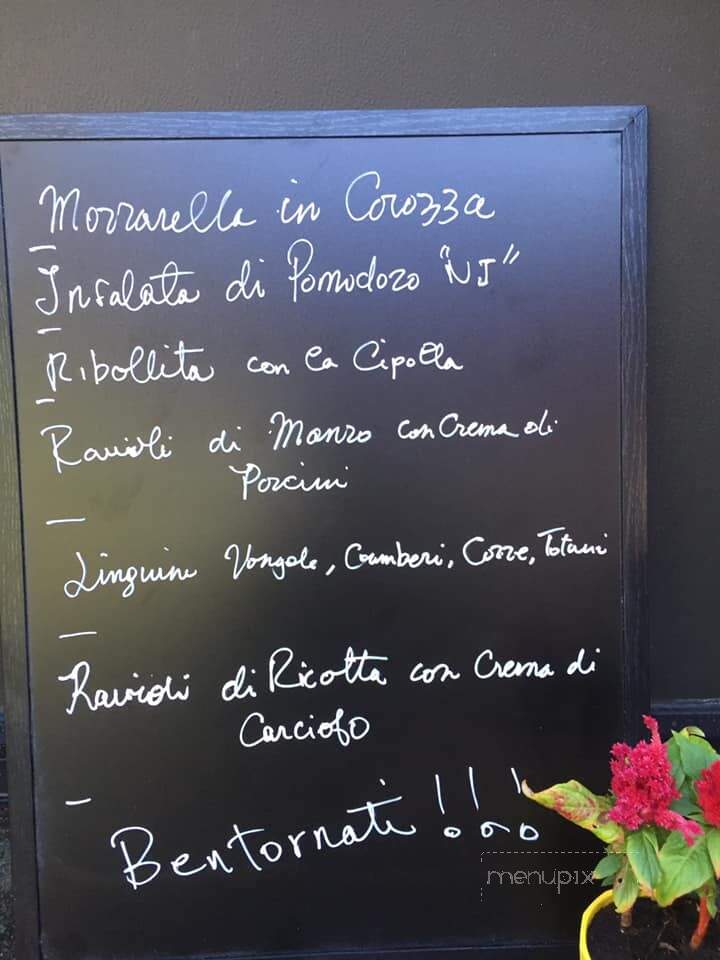 Mozzarella in Carozza
Insalata di Pomodoro "NJ"
Ribollita con la Cipolla
Ravioli di Manzo con Crema di
Porcini
Linguine Vongole, Gamberi, Cozze, Totani
Ravioli di Ricotta con Crema di
Carciofo
Bentornati!!!
menupix